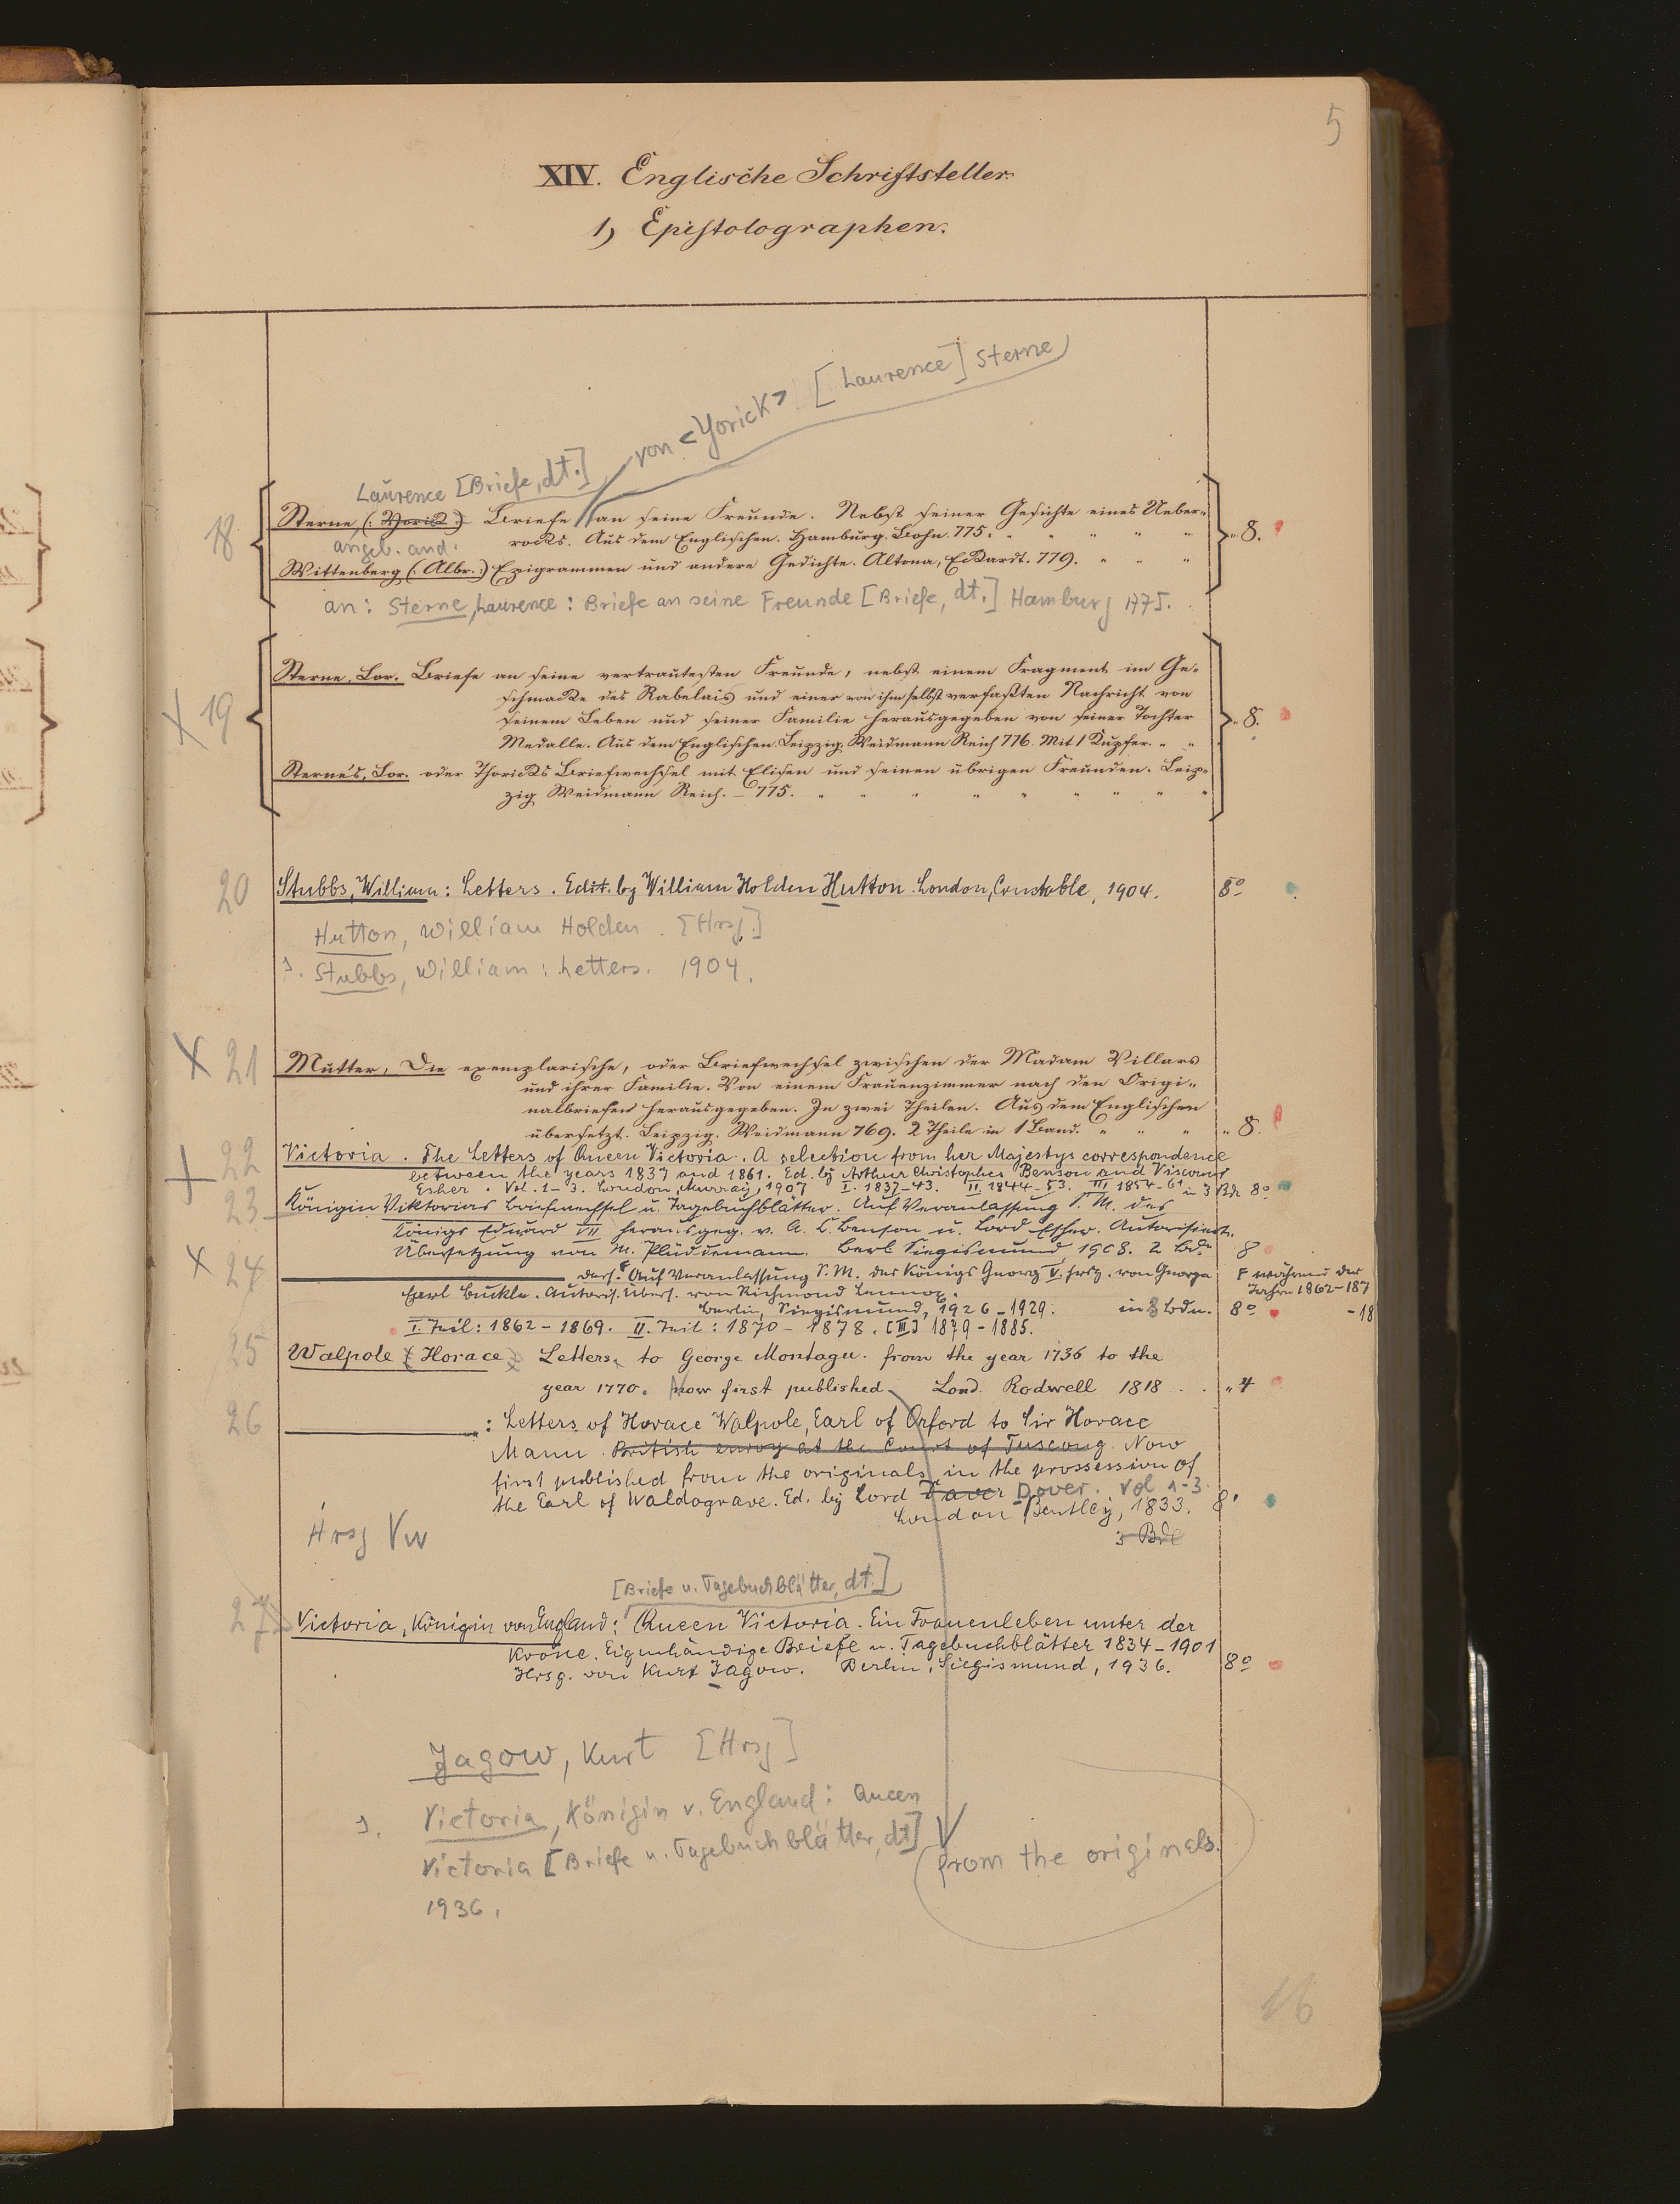 5
XIV. Englische Schriftsteller.
1) Epistolographen.
von <Yorick> [Laurence] Sterne
Laurence [Briefe, dt.]
18 Sterne (: Yorick :) Briefe an seine Freunde. Nebst seiner Geschichte eines Ueber-
rocks. Aus dem Englischen. Hamburg. Bohn. 775. " " " " " 8.
angeb. and.
Wittenberg (: Albr. :) Epigrammen und andere Gedichte. Altona, Eckardt. 779. " " "
an: Sterne, Laurence: Briefe an seine Freunde [Briefe, dt.] Hamburg 1775.
X 19 Sterne, Lor. Briefe an seine vertrautesten Freunde, nebst einem Fragment im Ge-
schmacke des Rabelais und einer von ihm selbst verfaßten Nachricht von
seinem Leben und seiner Familie herausgegeben von seiner Tochter " 8.
Medalle. Aus dem Englischen. Leipzig. Weidmann Reich 776. Mit 1 Kupfer. " "
Sterne's, Lor. oder Yoricks Briefwechsel mit Elisen und seinen übrigen Freunden. Leip-
zig Weidmann Reich. – 775. " " " " " " " " "
20 Stubbs, William: Letters. Edit. by William Holden Hutton. London, Constable, 1904. 8º
Hutton, William Holden. [Hrsg.]
s. Stubbs, William: Letters. 1904.
X 21 Mutter, Die exemplarische, oder Briefwechsel zwischen der Madam Villars
und ihrer Familie. Von einem Frauenzimmer nach den Origi-
nalbriefen herausgegeben. In zwei Theilen. Aus dem Englischen
übersetzt. Leipzig. Weidmann 769. 2 Theile in 1 Band. " " " " 8.
X 22 Victoria. The Letters of Queen Victoria. A selection from her Majestys correspondence
between the years 1837 and 1861. Ed. by Arthur Christopher Benson and Viscount
Esher. Vol. 1-3. London, Murray, 1907 I. 1837-43. II 1844-53. III 1854-61 in 3 Bdn 8º
23 Königin Viktorias Briefwechsel u. Tagebuchblätter. Auf Veranlassung S. M. des
Königs Eduard VII herausgeg. v. A. C. Benson u. Lord Esher. Autorisierte
Übersetzung von M. Plüddemann. Berl. Siegismund 1908. 2 Bde 8
X 24 ——— dass. F Auf Veranlassung S. M. des Königs Georg V. hrsg. von George F während der
Earl Buckle. Autoris. Übers. von Richmond Lennox. Jahre 1862-187
Berlin, Siegismund, 1926-1929. in 3 Bdn. 8º -18
I. Teil: 1862-1869. II. Teil: 1870-1878. [III] 1879-1885.
25 Walpole (Horace) Letters, to George Montagu. from the year 1736 to the
year 1770. Now first published Lond. Rodwell 1818 . . " 4
26 ——— : Letters of Horace Walpole, Earl of Orford to Sir Horace
Mann. British envoy at the Court of Tuscany. Now
first published from the originals in the prossession of
the Earl of Waldograve. Ed. by Lord Daver Dover. Vol 1-3.
London Bentley, 1833. 8º
3 Bde
Hrsg Vw
[Briefe u. Tagebuchblätter, dt.]
27 Victoria, Königin von England: Queen Victoria. Ein Frauenleben unter der
Krone. Eigenhändige Briefe u. Tagebuchblätter 1834-1901
Hrsg. von Kurt Jagow. Berlin, Siegismund, 1936. 8º
Jagow, Kurt [Hrsg]
s. Victoria, Königin v. England: Queen
Victoria [Briefe u. Tagebuchblätter, dt]
1936.
from the originals.
16